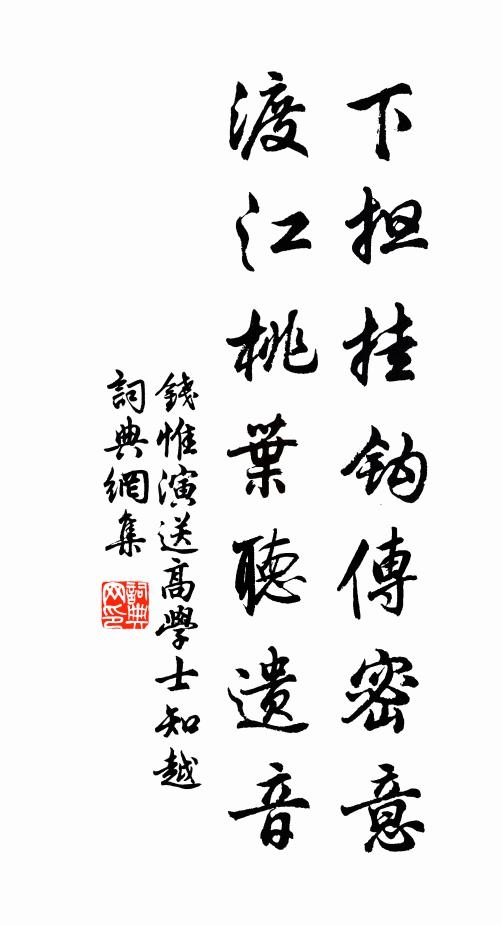 下担挂鈎傳密意
渡江桃葉聽遺音
錢惟演送高學士知越
詞典網集
詞典网印